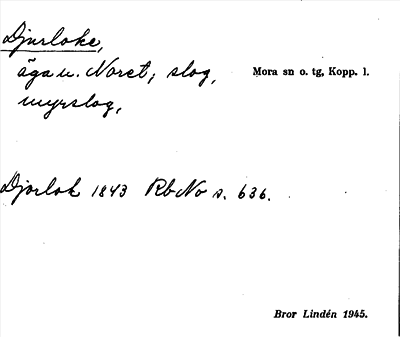 Djurloke,
äga u. Noret; slog, Mora sn o. tg, Kopp. l.
myrslog,
Djorlok 1843 RbNo s. 636.
Bror Lindén 1945.